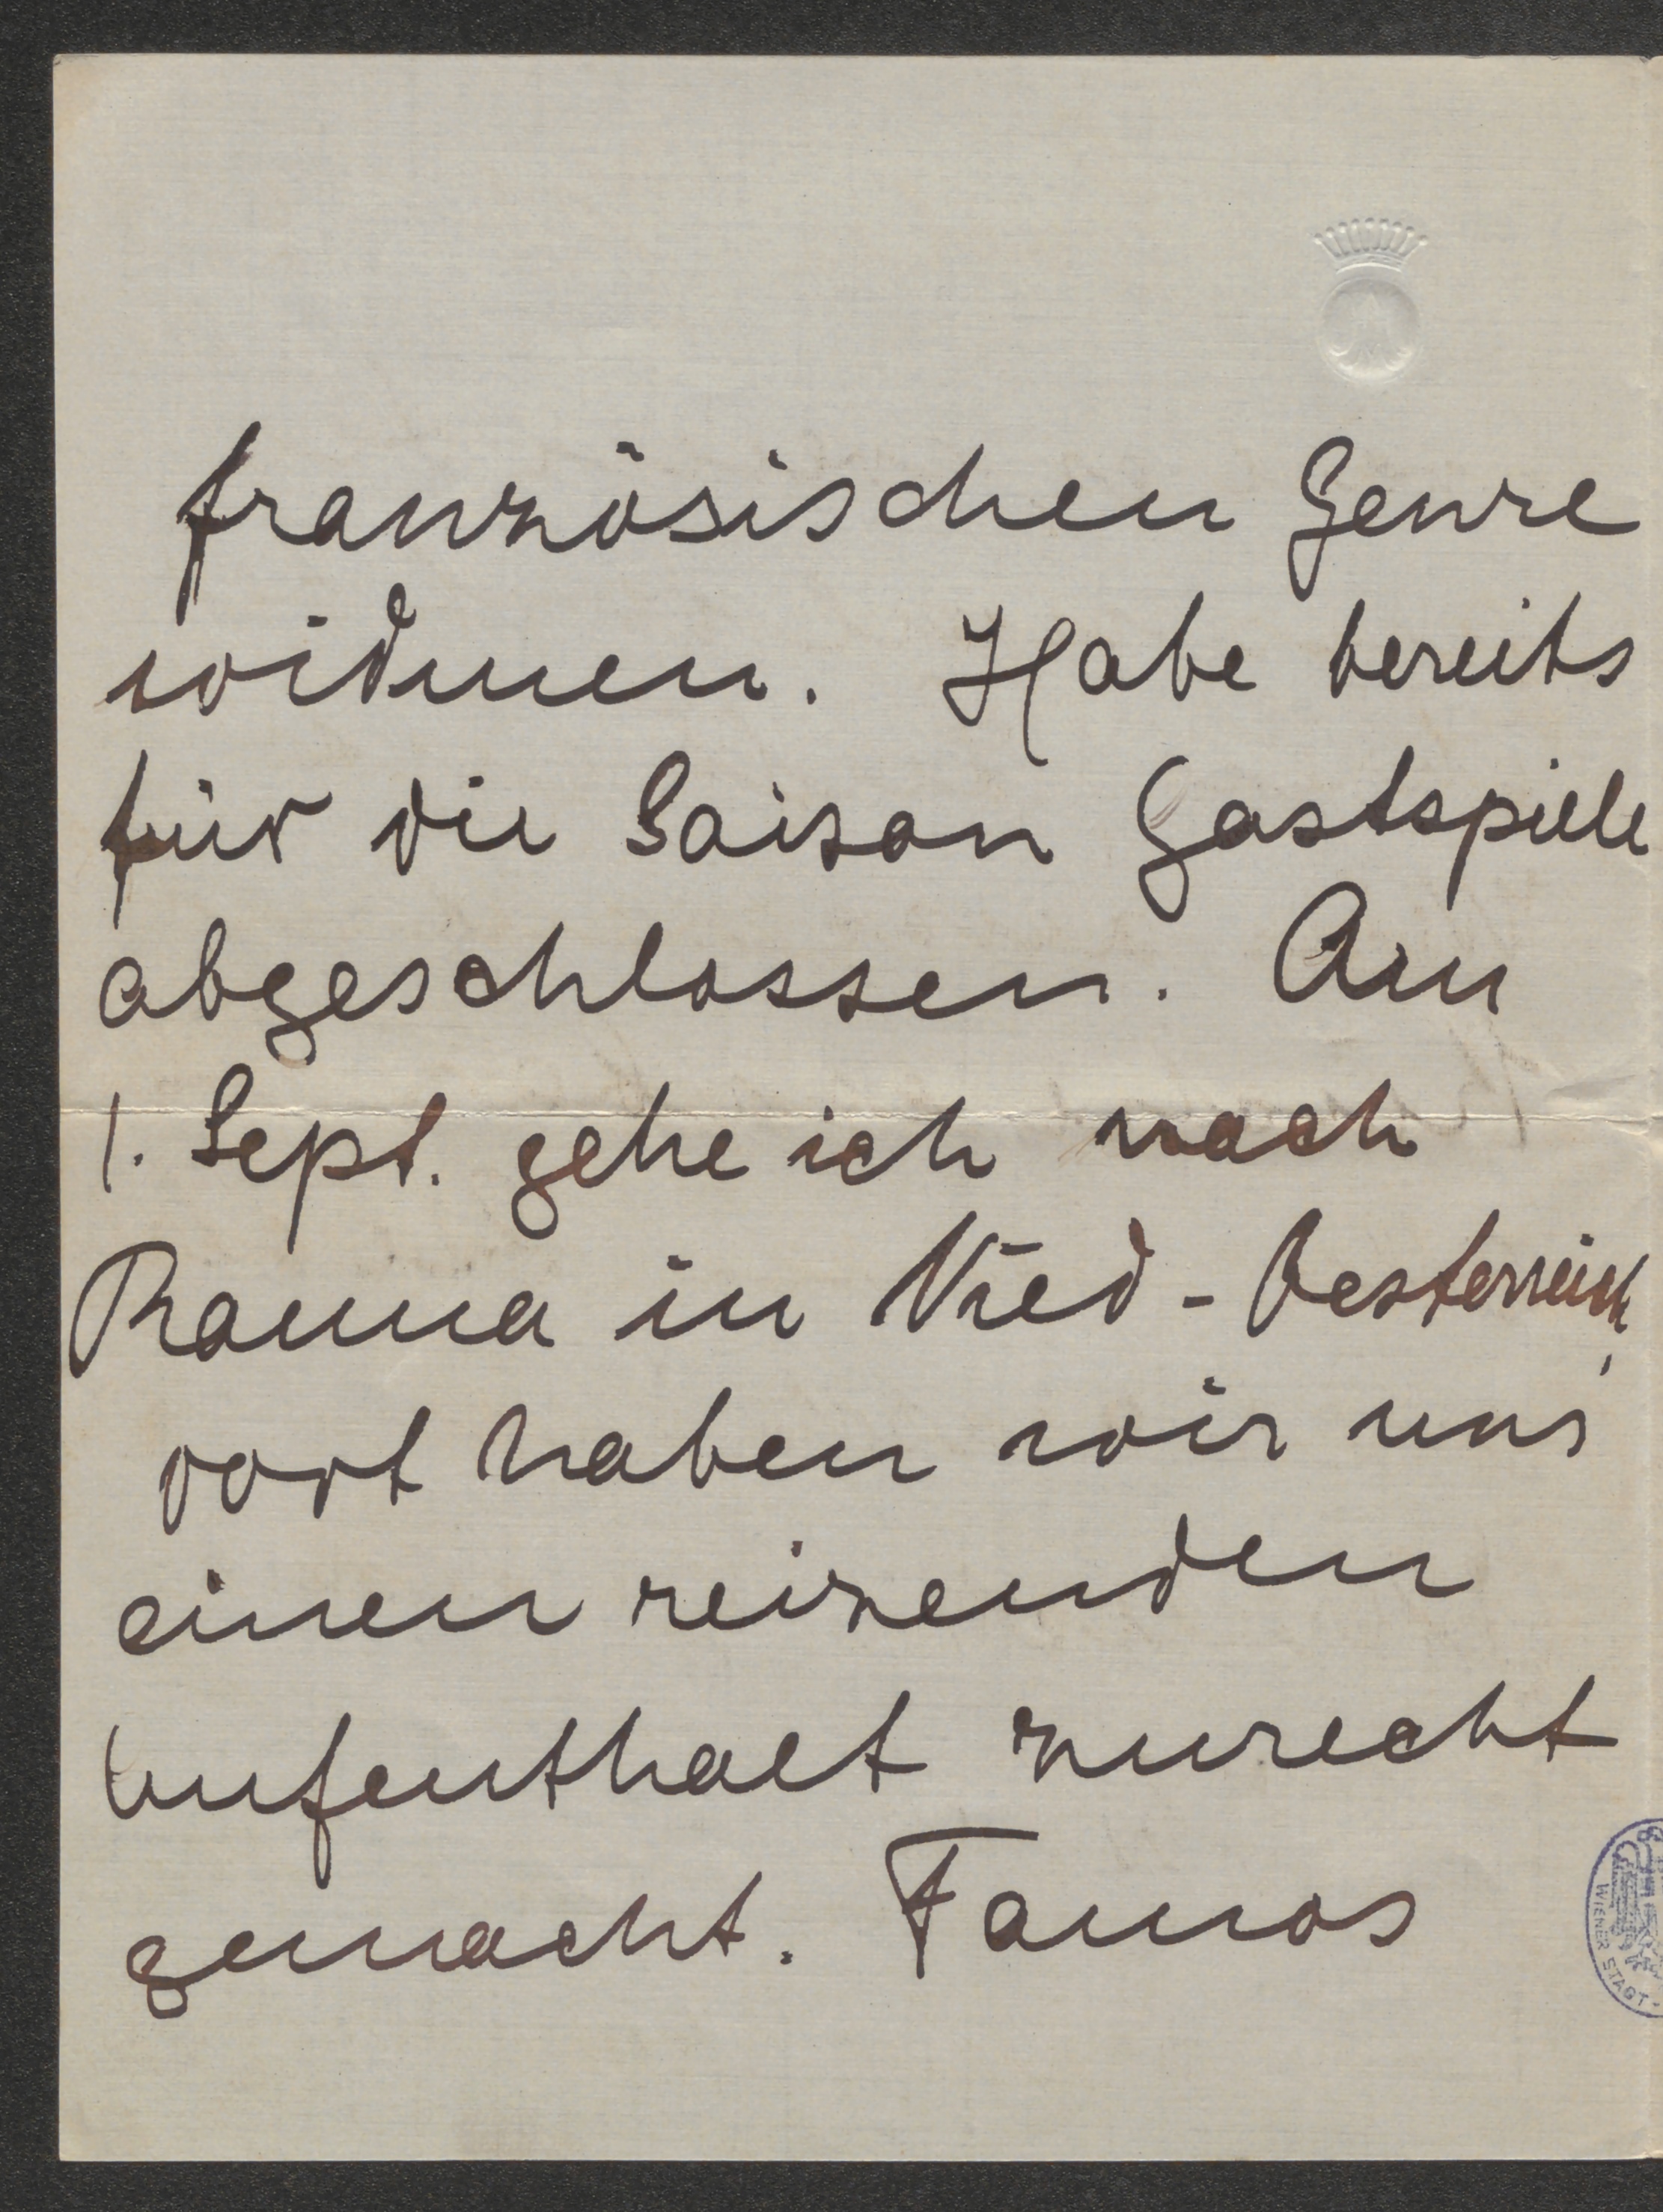 französischen Genre
widmen. Habe bereits
für die Saison Gastspiele
abgeschlossen. Am
1. Sept. gehe ich nach
Ranna in Nied-Oesterreich,
dort haben wir uns
einen reizenden
Aufenthalt zurecht
gemacht. Famos
WIENER STADT-